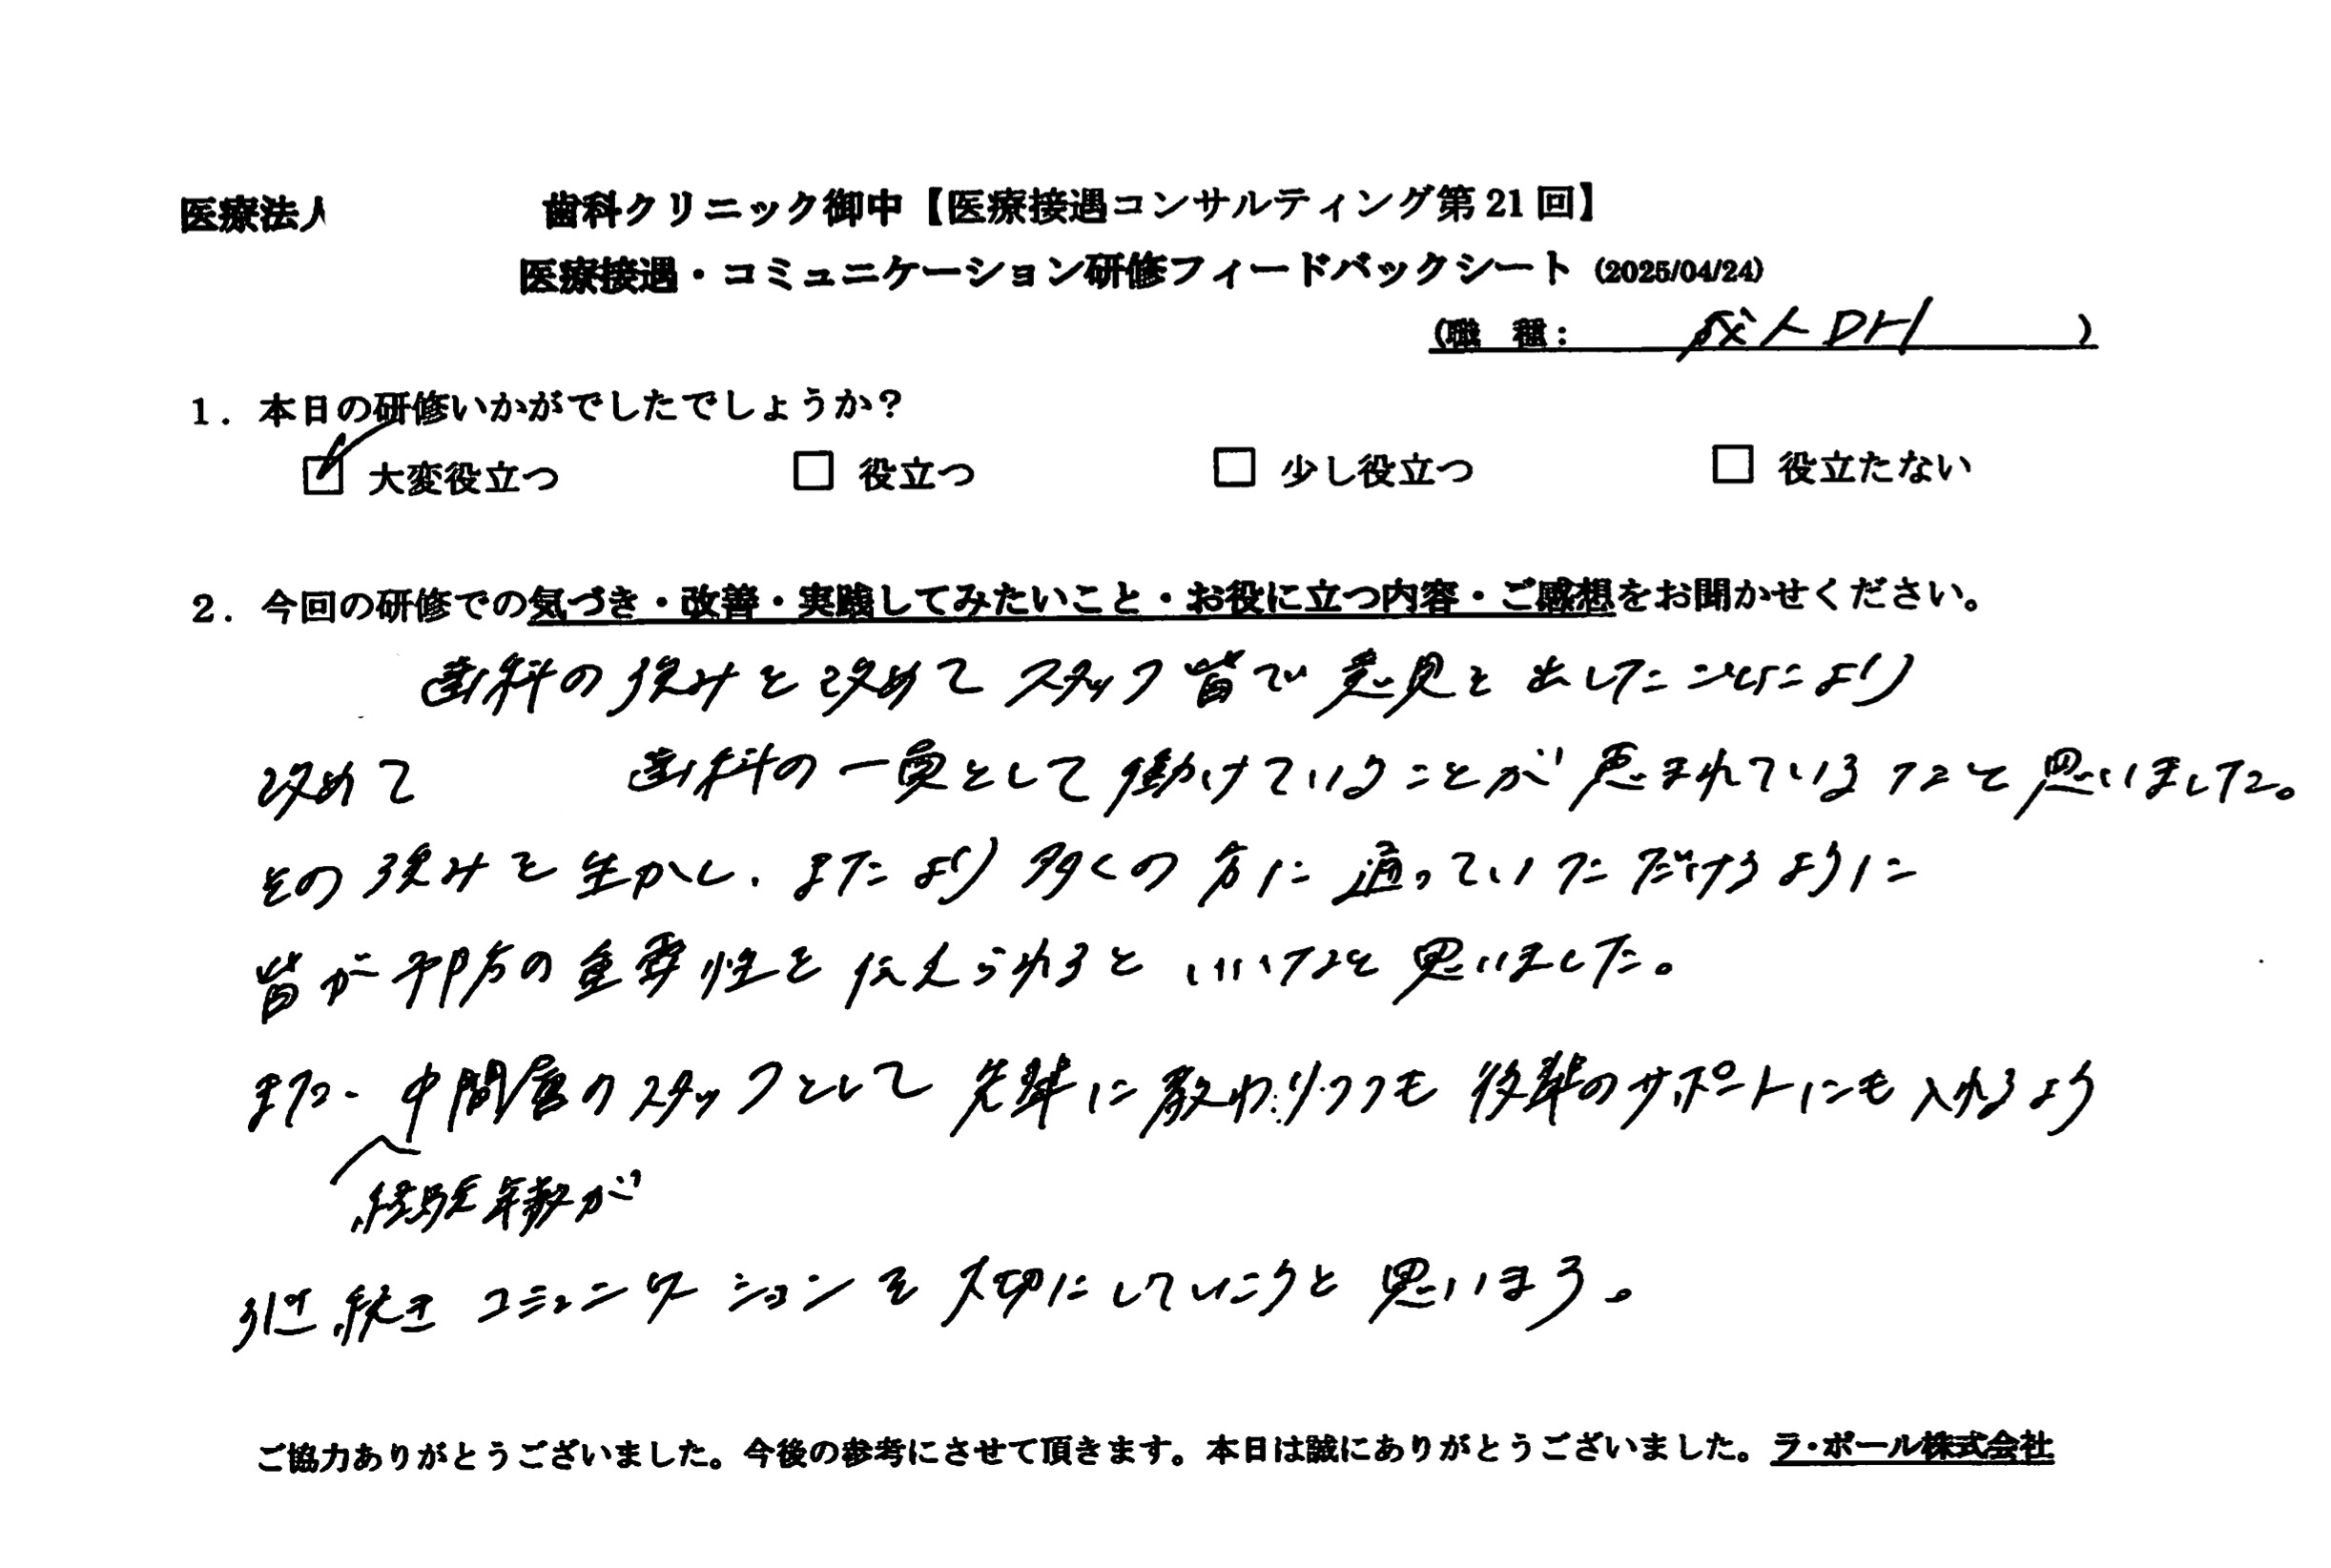 医療法人 歯科クリニック御中【医療接遇コンサルティング第21回】
医療接遇・コミュニケーション研修フィードバックシート（2025/04/24）
（職 種： 成人DH ）
1. 本日の研修いかがでしたでしょうか？
☑ 大変役立つ □ 役立つ □ 少し役立つ □ 役立たない
2. 今回の研修での気づき・改善・実践してみたいこと・お役に立つ内容・ご感想をお聞かせください。
歯科の強みを改めてスタッフ皆で意見を出したことにより
改めて 歯科の一員として働けていることが恵まれているなと思いました。
その強みを生かし、またより多くの方に通っていただけるように
皆が予防の重要性を伝えられるといいなと思いました。
また、中間層のスタッフとして先輩に教わりつつも後輩のサポートにも入れるよう
経験年数が
引き続きコミュニケーションを大切にしていこうと思います。
ご協力ありがとうございました。今後の参考にさせて頂きます。本日は誠にありがとうございました。ラ・ポール株式会社